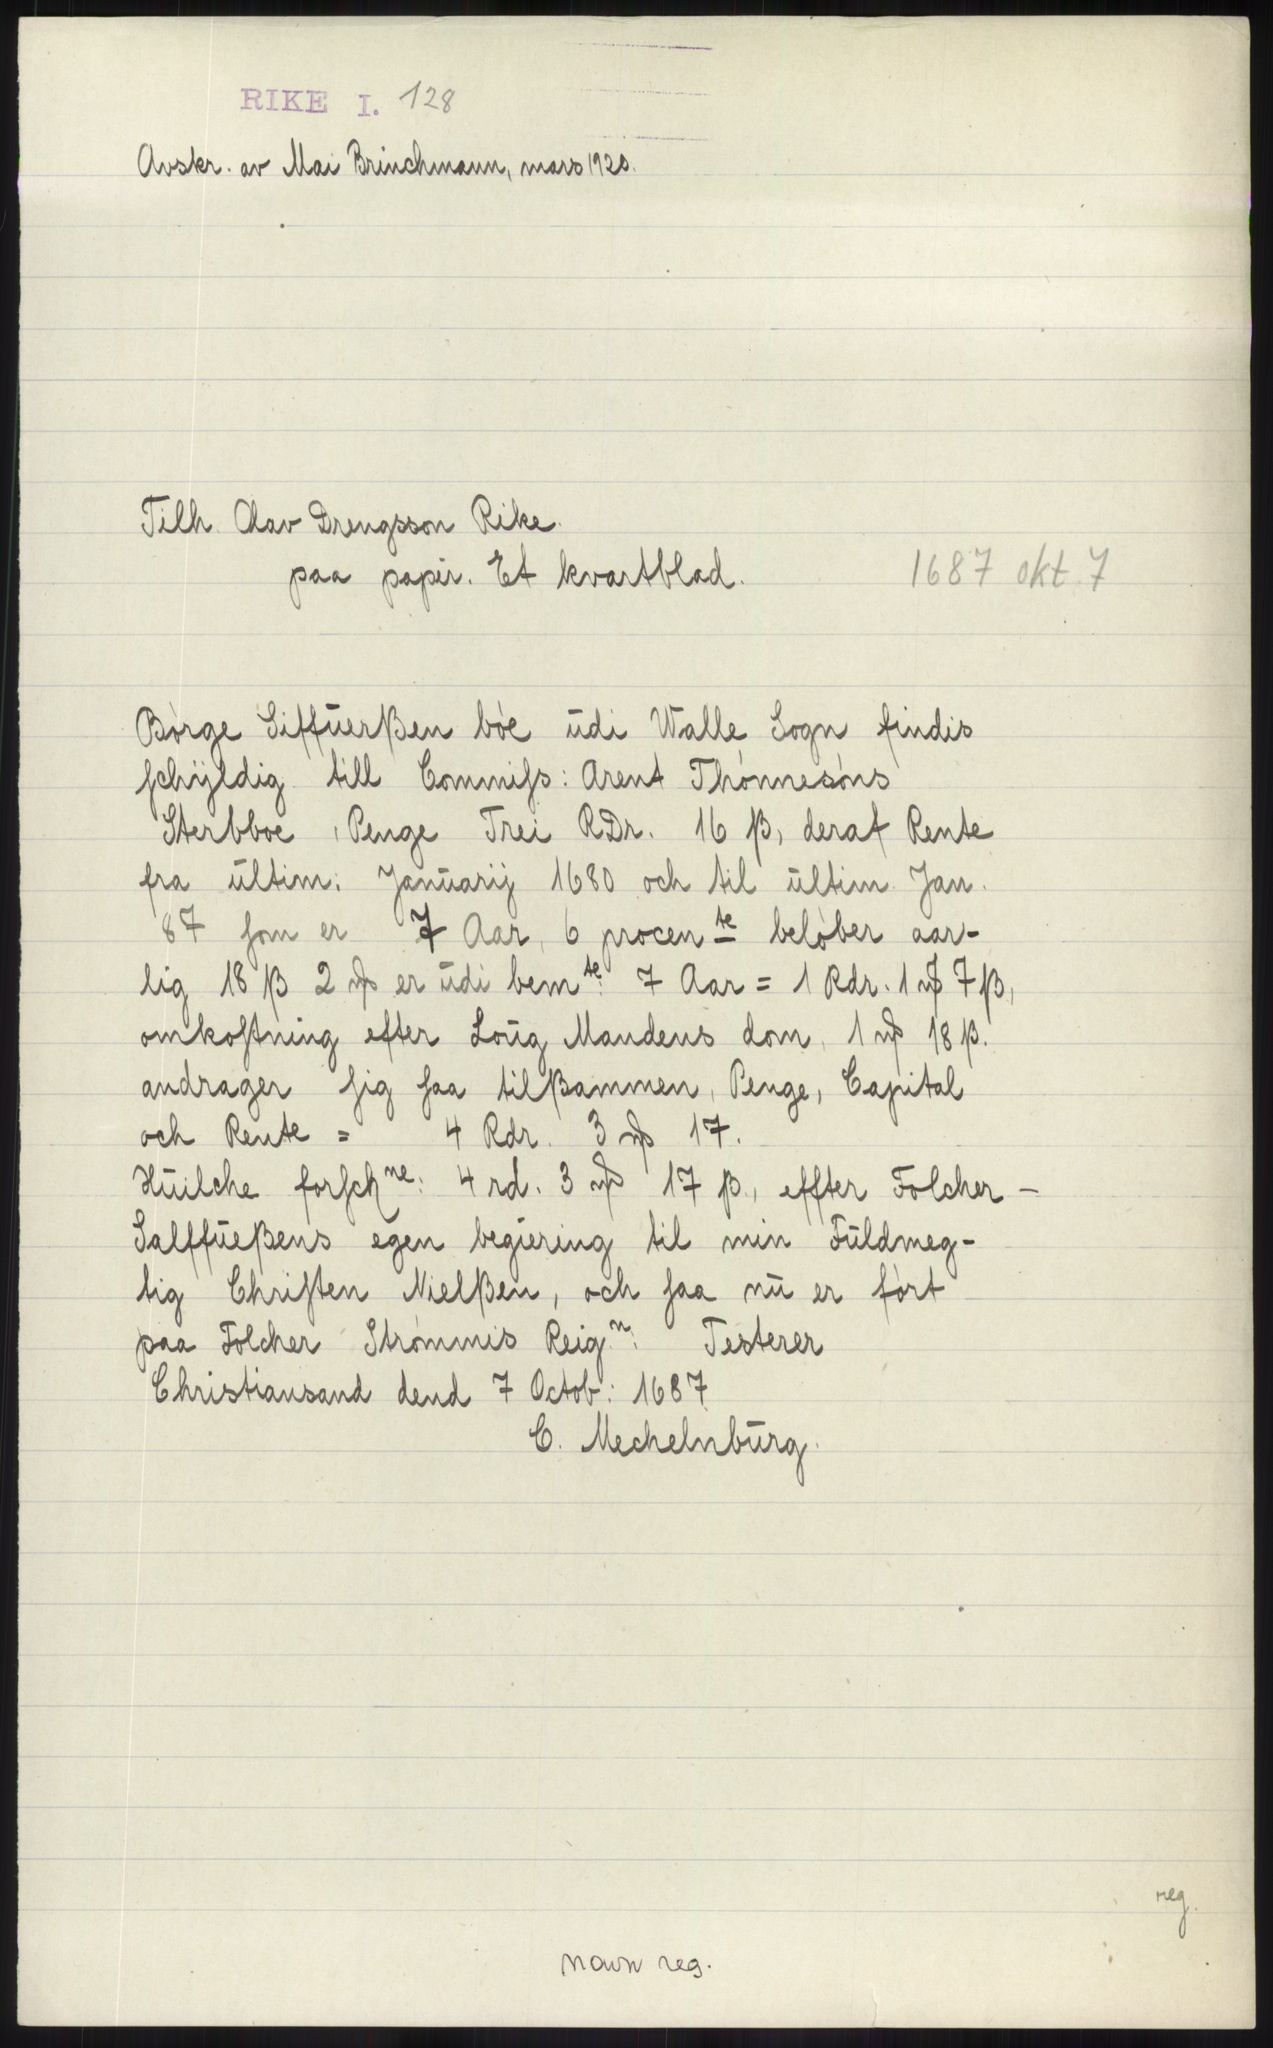 RIKE I. 128
Avskr. av Mai Brinchmann, mars 1920.
Tilh. Olav Drengsson Rike.
paa papir. Et kvartblad.
1687 okt. 7
Børge Siffuerßen bóe udi Walle Sogn findis
ſchÿldig till Commiſs: Arent Thónnesóns
Sterbboe, Penge Trei RDr. 16 β, deraf Rente
fra ultim: Januarij 1680 och til ultim. Jan.
87 ſom er 7 Aar, 6 procente belóber aar-
lig 18 β 2 er udi bemte: 7 Aar = 1 Rdr. 1 7 β,
omkoſtning efter Loug Mandens dom, 1 18 β.
andrager ſig ſaa tilßammen, Penge, Capital
och Rente = 4 Rdr. 3 17.
Huilche forſchne: 4 rd. 3 17 β., effter Folcher -
Salffueßens egen begiering til min Fuldmeg-
tig Chriſten Nielßen, och ſaa nu er fórt
paa Folcher Strómmis Reign: Testerer
Christiansand dend 7 Octob: 1687
C. Mechelnburg.
reg.
navn reg.